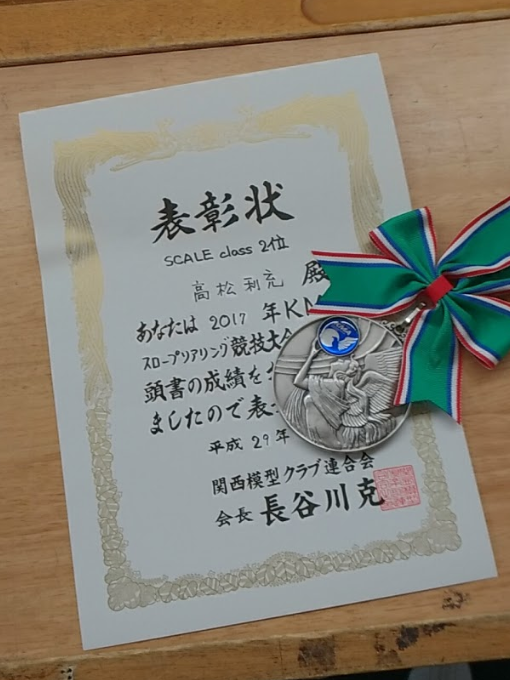 表彰状
SCALE class 2位
高松利充 殿
あなたは 2017 年KM
スロープソアリング競技大会
頭書の成績を
ましたので表
平成 29年
関西模型クラブ連合会
会長 長谷川克